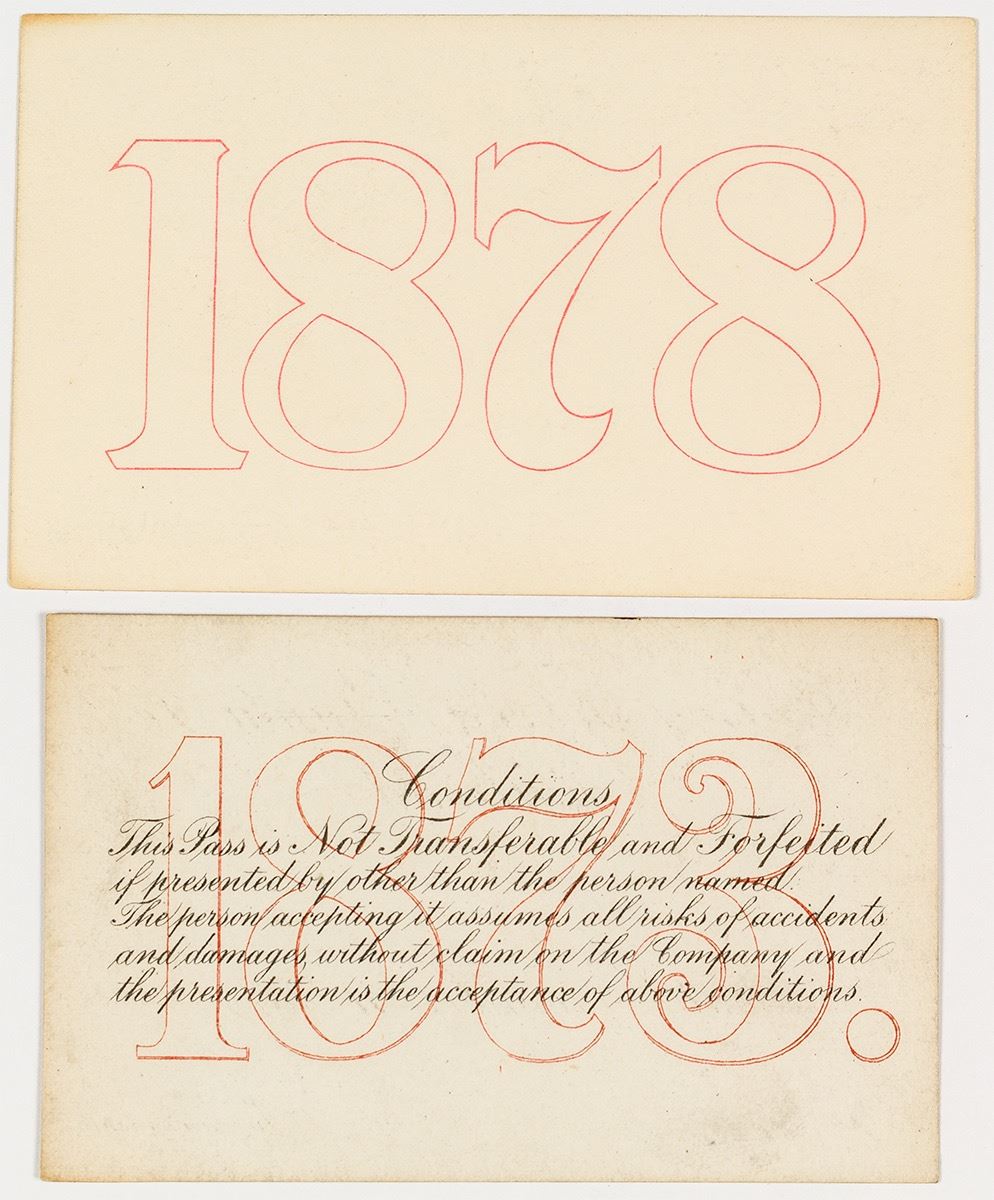 1878
1873.
Conditions
This Pass is Not Transferable and Forfeited
if presented by other than the person named.
The person accepting it assumes all risks of accidents
and damages, without claim on the Company and
the presentation is the acceptance of above conditions.